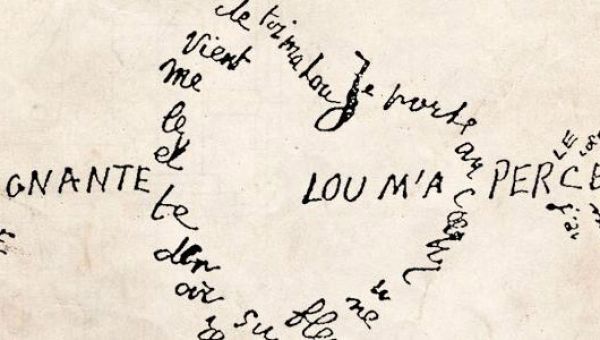 de toi ma Lou
Je porte
au cœur
une
ble
su
vient
me
le
et
te
GNANTE
LOU M'A PERCE
LE